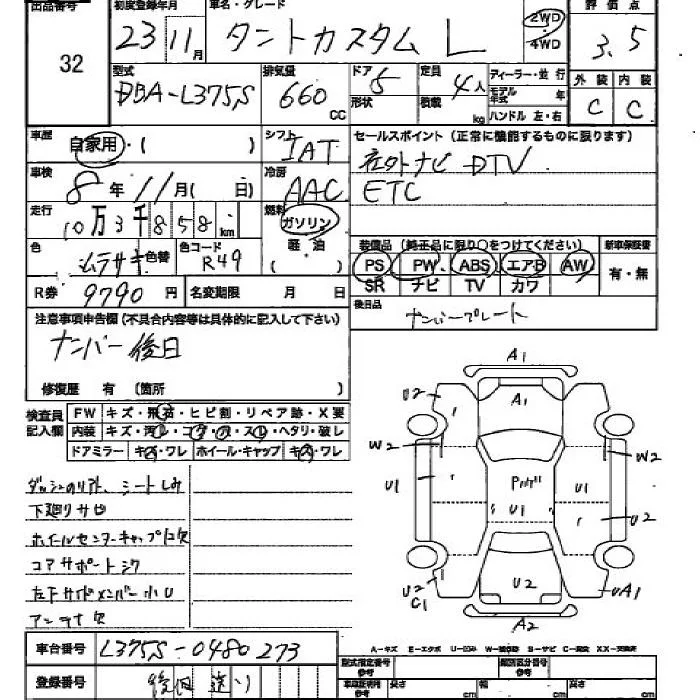 出品番号 初度登録年月 車名・グレード 評価点
32 23 11月 タントカスタム L 2WD 4WD 3.5
型式 排気量 ドア 5 定員 4人 ディーラー・並行 外装 内装
DBA-L375S 660 CC 形状 積載 kg モデル年式 年 C C
ハンドル 左・右
車歴 自家用・( ) シフト IAT セールスポイント (正常に機能するものに限ります)
社外ナビ DTV
車検 8年 11月( 日) 冷房 AAC ETC
走行 10万3千858km 燃料 ガソリン
軽油
( )
色 ムラサキ 色替 色コード R49 装備品(純正品に限り○をつけてください) 新車保証書
PS PW ABS エアB AW 有・無
R券 9790円 名変期限 月 日 SR ナビ TV カワ
後日品
注意事項申告欄(不具合内容等は具体的に記入して下さい) ナンバープレート
ナンバー後日
修復歴 有 (箇所
検査員記入欄 FW キズ・飛石・ヒビ割・リペア跡・X要
内装 キズ・汚レ・コゲ・穴・スレ・ヘタリ・破レ
ドアミラー キズ・ワレ ホイール・キャップ キズ・ワレ
シートしみ
下廻りサビ
ホイールセンターキャップ1ケ欠
コアサポート
左下サイドメンバー小U
アンテナ欠
A1
U2 A1
W2 W2
U1 U1
U1 U2
U2 U2 UA1
C1
A2
車台番号 L375S-0480273
A-キズ E-エクボ U-凹み W-補修跡 S-サビ C-腐食 XX-交換済
登録番号 後日送り
型式指定番号 参考 類別区分番号 参考
車庫証明用 参考 長さ cm 幅 cm 高さ cm